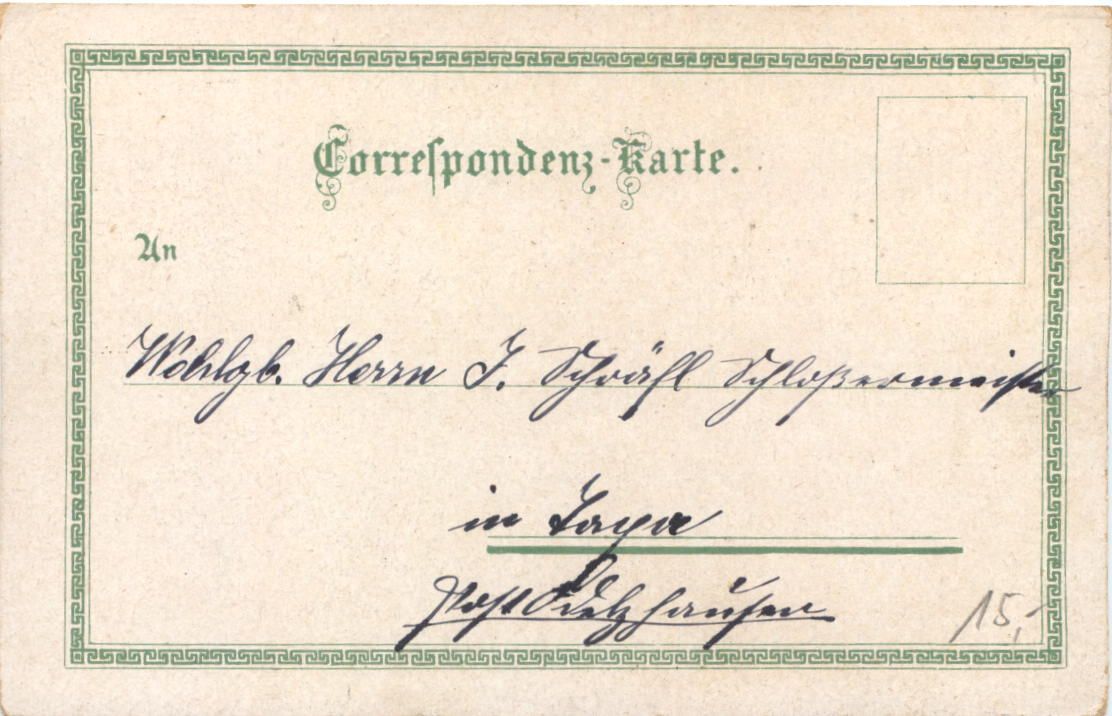 Correspondenz-Karte.
An
Wohlgb. Herrn J. Schräfl Schloßermeister
in Taxa
Post Odelzhausen
15,-